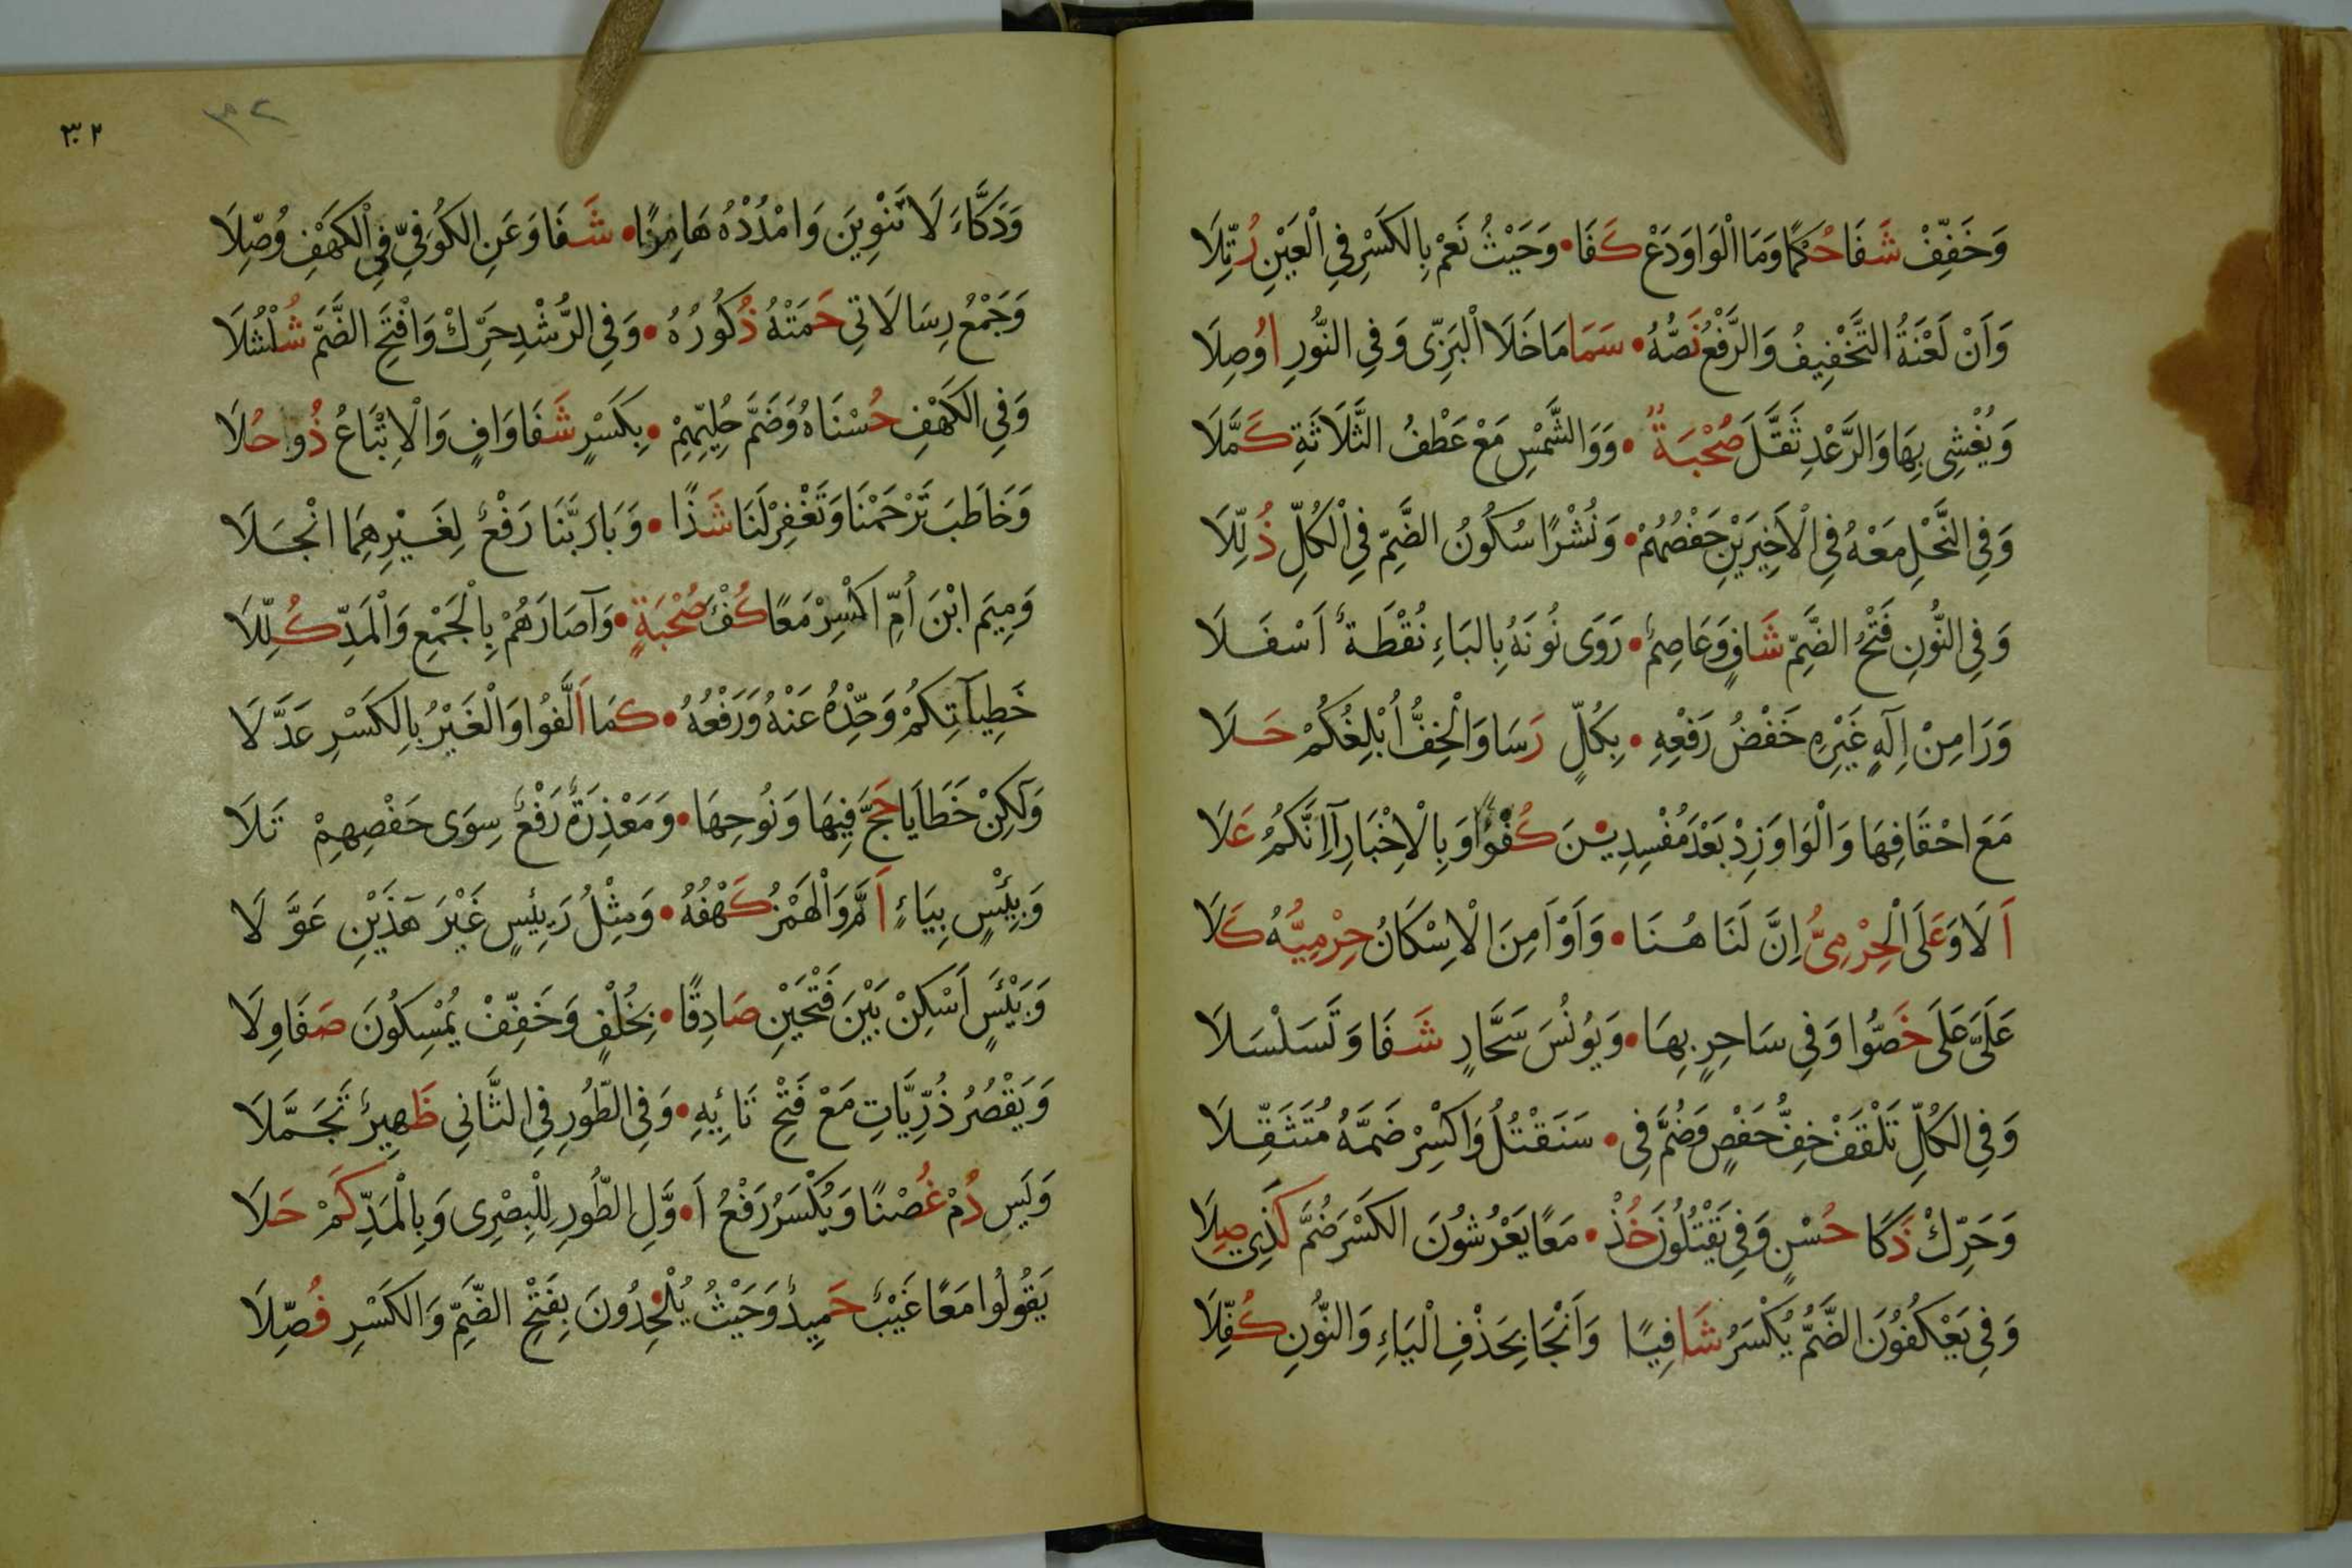 وَخَفِّفْ شَفَا حُكْمًا وَمَا الْوَاوَ دَعْ كَفَا • وَحَيْثُ نَعَمْ بِالكَسْرِ فِي الْعَيْنِ رُتِّلَا
وَاَنْ لَعْنَةُ التَّخْفِيفُ وَالرَّفْعُ نَصُّهُ • سَمَا مَا خَلَا الْبَزِّى وَفِي النُّورِ اُوصِلَا
وَيُغْشِى بِهَا وَالرَّعْدِ ثَقَّلَ صُحْبَةٌ • وَوَالشَّمْسِ مَعْ عَطْفُ الثَّلَاثَةِ كَمَّلَا
وَفِي النَّحْلِ مَعْهُ فِي الْاَخِيرَيْنِ حَفْصُهُمْ • وَنُشْرًا سُكُونُ الضَّمِّ فِي الْكُلِّ ذُلِّلَا
وَفِي النُّونِ فَتْحُ الضَّمِّ شَافٍ وَعَاصِمٌ • رَوَى نُونَهُ بِالبَاءِ نُقْطَةٌ اَسْفَلَا
وَرَا مِنْ اِلٰهٍ غَيْرِهِ خَفْضُ رَفْعِهِ • بِكُلٍّ رَسَا وَالْخِفُّ اُبْلِغُكُمْ حَلَا
مَعَ احْقَافِهَا وَالْوَاوَ زِدْ بَعْدَ مُفْسِدِيْنَ كُفْؤًا وَبِالْاِخْبَارِ اِنَّكُمُ عَلَا
اَلَا وَعَلَى الْحِرْمِىُّ اِنَّ لَنَا هُنَا • وَاَوْ اَمِنَ الْاِسْكَانُ حِرْمِيُّهُ كَلَا
عَلَىَّ عَلَى خَصُّوا وَفِي سَاحِرٍ بِهَا • وَيُونُسَ سَحَّارٍ شَفَا وَتَسَلْسَلَا
وَفِي الكُلِّ تَلْقَفْ خِفُّ حَفْصٍ وَضُمَّ فِي • سَنَقْتُلُ وَاكْسِرْ ضَمَّهُ مُتَثَقِّلَا
وَحَرِّكْ ذَكَا حُسْنٍ وَفِي يَقْتُلُونَ خُذْ • مَعًا يَعْرُشُونَ الكَسْرَ ضُمَّ كَذِي صِلَا
وَفِي يَعْكُفُونَ الضَّمُّ يُكْسَرُ شَافِيًا وَاَنْجَا بِحَذْفِ الْيَاءِ وَالنُّونِ كُفِّلَا
٣٢
٣٢
وَدَكَّاءَ لَا تَنْوِينَ وَامْدُدْهُ هَامِزًا • شَفَا وَعَنِ الكُوفِيِّ فِي الْكَهْفِ وُصِّلَا
وَجَمْعُ رِسَالَاتِي حَمَتْهُ ذُكُورُهُ • وَفِي الرُّشْدِ حَرِّكْ وَافْتَحِ الضَّمَّ شُلْشُلَا
وَفِي الكَهْفِ حُسْنَاهُ وَضَمَّ حُلِيِّهِمْ • بِكَسْرٍ شَفَا وَافٍ وَالْاِتْبَاعُ ذُو حُلَا
وَخَاطَبَ تَرْحَمْنَا وَتَغْفِرْ لَنَا شَذًا • وَبَا رَبَّنَا رَفْعٌ لِغَيْرِهِمَا انْجَلَا
وَمِيمَ ابْنَ اُمِّ اكْسِرْ مَعًا كُفْؤَ صُحْبَةٍ • وَآصَارَهُمْ بِالْجَمْعِ وَالْمَدِّ كُلِّلَا
خَطِيآتِكُمْ وَحِّدْهُ عَنْهُ وَرَفْعُهُ • كَمَا اَلَّفُوا وَالْغَيْرُ بِالكَسْرِ عَدَّلَا
وَلٰكِنْ خَطَايَا حَجَّ فِيهَا وَنُوحِهَا • وَمَعْذِرَةٌ رَفْعٌ سِوَى حَفْصِهِمْ تَلَا
وَبِيْسٍ بِيَاءٍ اَمَّ وَالْهَمْزُ كَهْفُهُ • وَمِثْلُ رَئِيسٍ غَيْرَ هٰذَيْنِ عَوَّلَا
وَبَيْئَسٍ اَسْكِنْ بَيْنَ فَتْحَيْنِ صَادِقًا • بِخُلْفٍ وَخَفِّفْ يُمْسِكُونَ صَفَا وِلَا
وَيَقْصُرُ ذُرِّيَّاتِ مَعْ فَتْحِ تَائِهِ • وَفِي الطُّورِ فِي الثَّانِي ظَهِيرٌ تَجَمَّلَا
وَيَس دُمْ غُصْنًا وَيُكْسَرُ رَفْعُ اَ • وَّلِ الطُّورِ لِلْبِصْرِى وَبِالْمَدِّ كَمْ حَلَا
يَقُولُوا مَعًا غَيْبٌ حَمِيدٌ وَحَيْثُ يُلْحِدُونَ بِفَتْحِ الضَّمِّ وَالكَسْرِ فُصِّلَا